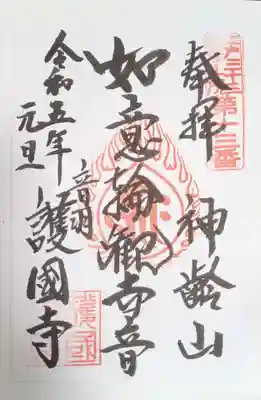 奉拝
第十三番
神齢山
如意輪観世音
令和五年
元旦
音羽
護國寺